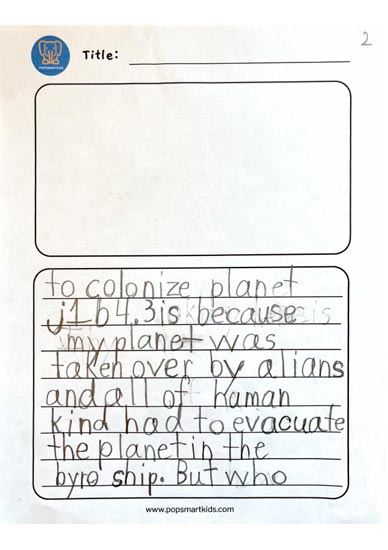 2
POPSMARTKIDS
Title:
to colonize planet
j1b4.3 is because
my planet was
taken over by alians
and all of haman
kind had to evacuate
the planet in the
byro ship. But who
www.popsmartkids.com